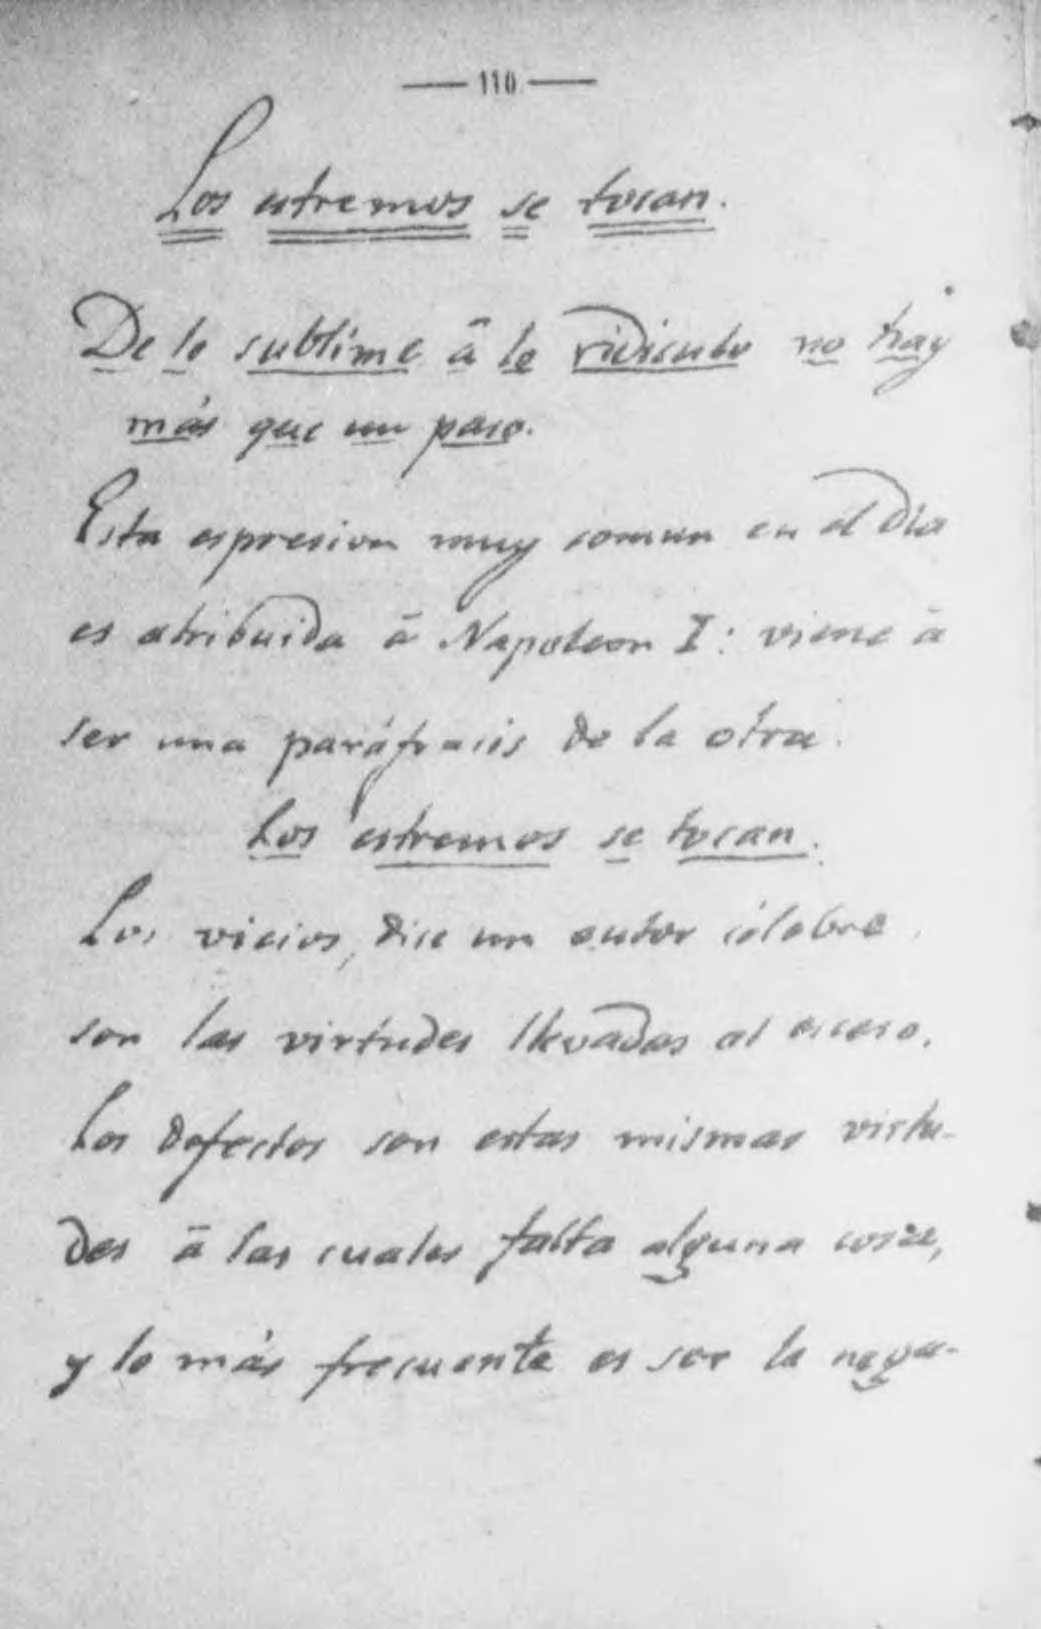 — 110 —
Los estremos se tocan.
De lo sublime á lo ridiculo no hay
más que un paso.
Esta espresion muy comun en el dia
es atribuida á Napoleon I: viene á
ser una paráfrasis de la otra.
Los estremos se tocan.
Los vicios, dice un autor célebre,
son las virtudes llevadas al esceso.
Los defectos son estas mismas virtu-
des á las cuales falta alguna cosa,
y lo más frecuente es ser la nega-